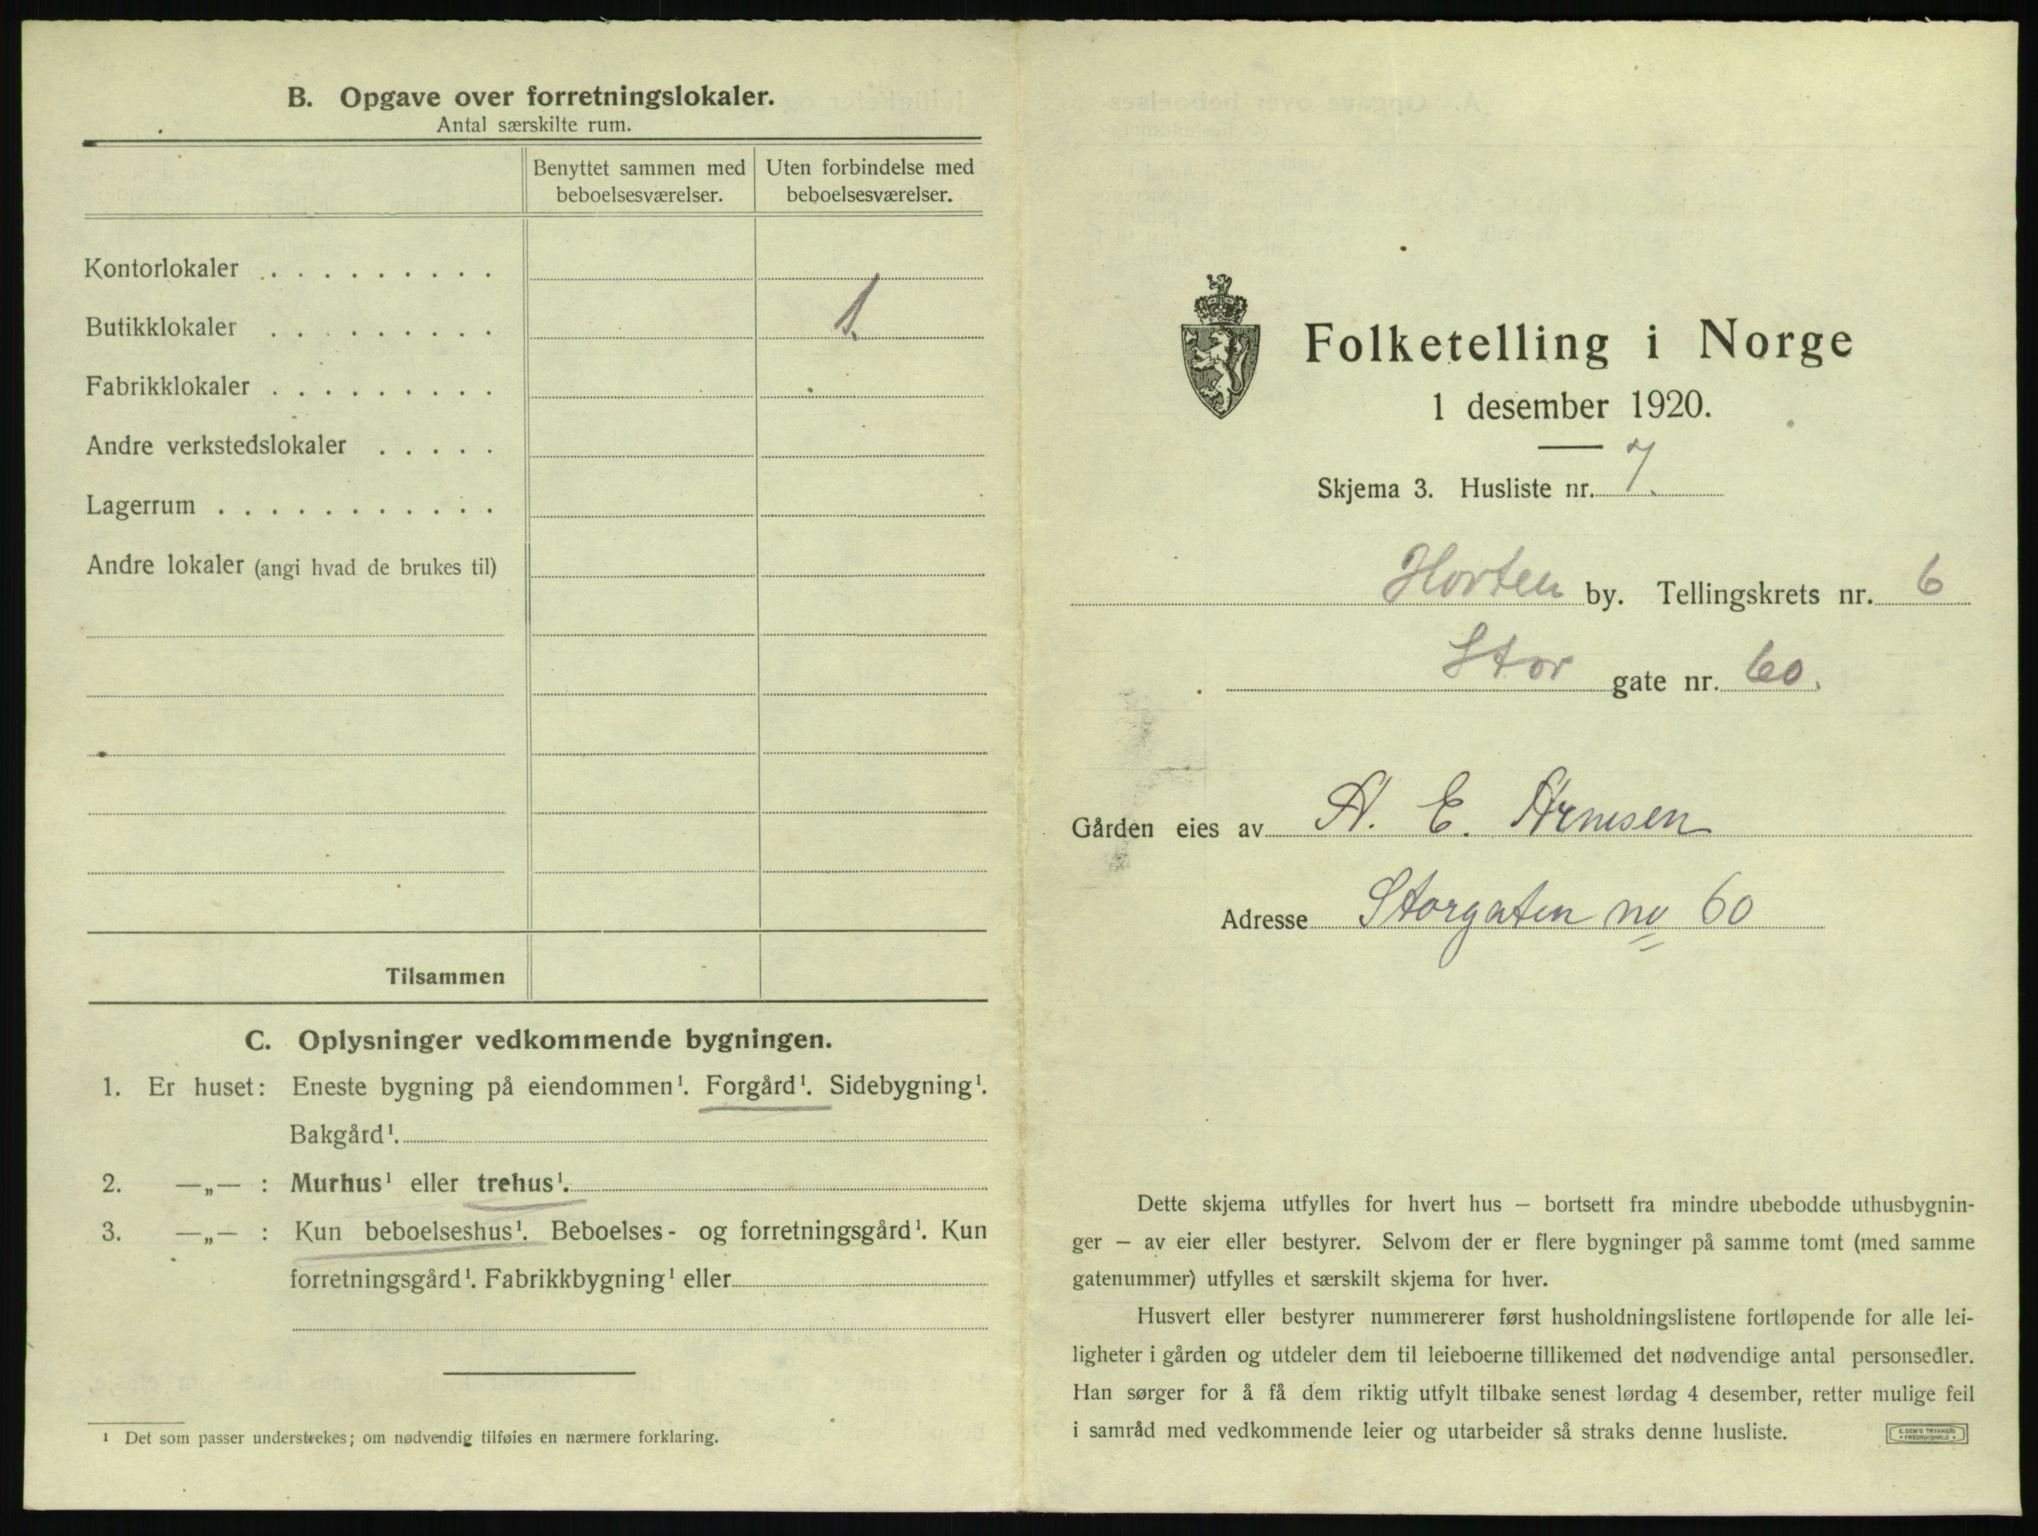 B. Opgave over forretningslokaler.
Antal særskilte rum.
Benyttet sammen med beboelsesværelser.
Uten forbindelse med beboelsesværelser.
Kontorlokaler . . . . . . . . .
Butikklokaler . . . . . . . . . 1.
Fabrikklokaler . . . . . . . . .
Andre verkstedslokaler . . . . .
Lagerrum . . . . . . . . . . .
Andre lokaler (angi hvad de brukes til)
Tilsammen
C. Oplysninger vedkommende bygningen.
1. Er huset: Eneste bygning på eiendommen¹. Forgård¹. Sidebygning¹.
Bakgård¹.
2. —„— : Murhus¹ eller trehus¹.
3. —„— : Kun beboelseshus¹. Beboelses- og forretningsgård¹. Kun
forretningsgård¹. Fabrikkbygning¹ eller
¹ Det som passer understrekes; om nødvendig tilføies en nærmere forklaring.
Folketelling i Norge
1 desember 1920.
Skjema 3. Husliste nr. 7.
Horten by. Tellingskrets nr. 6
Stor gate nr. 60.
Gården eies av A. E. Arnesen
Adresse Storgaten no 60
Dette skjema utfylles for hvert hus — bortsett fra mindre ubebodde uthusbygnin-
ger — av eier eller bestyrer. Selvom der er flere bygninger på samme tomt (med samme
gatenummer) utfylles et særskilt skjema for hver.
Husvert eller bestyrer nummererer først husholdningslistene fortløpende for alle lei-
ligheter i gården og utdeler dem til leieboerne tillikemed det nødvendige antal personsedler.
Han sørger for å få dem riktig utfylt tilbake senest lørdag 4 desember, retter mulige feil
i samråd med vedkommende leier og utarbeider så straks denne husliste.
E. SEM'S TRYKKERI
FREDRIKSHALD